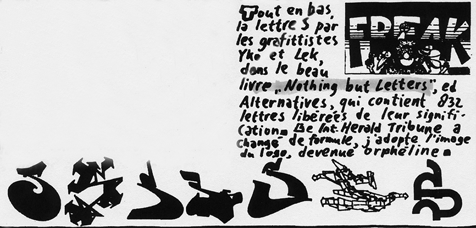 Tout en bas,
la lettre S par
les grafittistes
Yko et Lek,
dans le beau
livre „Nothing but Letters", ed
Alternatives, qui contient 832
lettres libérées de leur signifi-
cation. Le Int. Herald Tribune a
changé de formule, j'adopte l'image
du logo, devenue orpheline.
FREAK